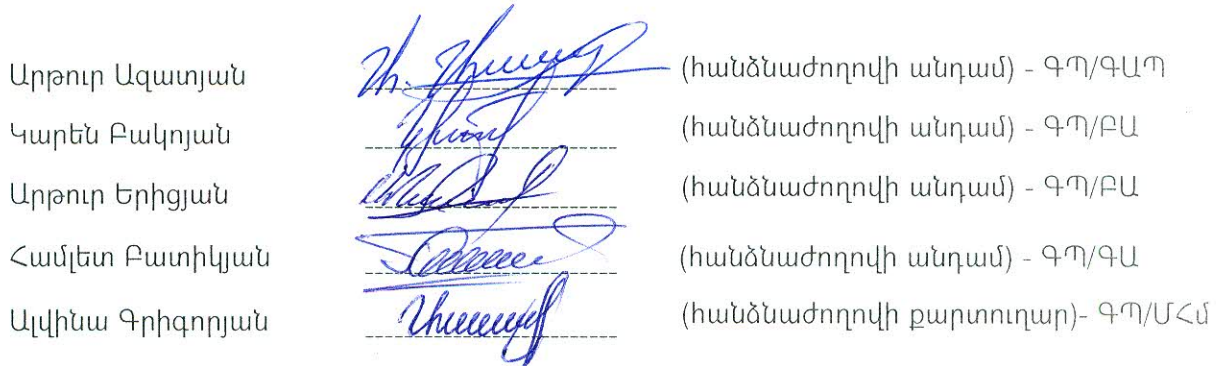 Արթուր Ազատյան (հանձնաժողովի անդամ) - ԳՊ/ԳԱՊ
Կարեն Բակոյան (հանձնաժողովի անդամ) - ԳՊ/ԲԱ
Արթուր Երիցյան (հանձնաժողովի անդամ) - ԳՊ/ԲԱ
Համլետ Բատիկյան (հանձնաժողովի անդամ) - ԳՊ/ԳԱ
Ալվինա Գրիգորյան (հանձնաժողովի քարտուղար)- ԳՊ/ՄՀմ